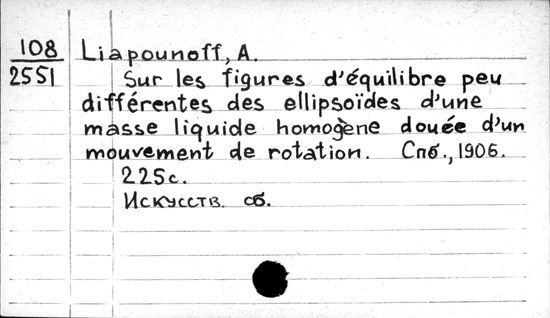 108 Liapounoff, A.
2551 Sur les figures d'équilibre peu
différentes des ellipsoïdes d'une
masse liquide homogène douée d'un
mouvement de rotation. Спб., 1906.
225с.
Искусств. сб.